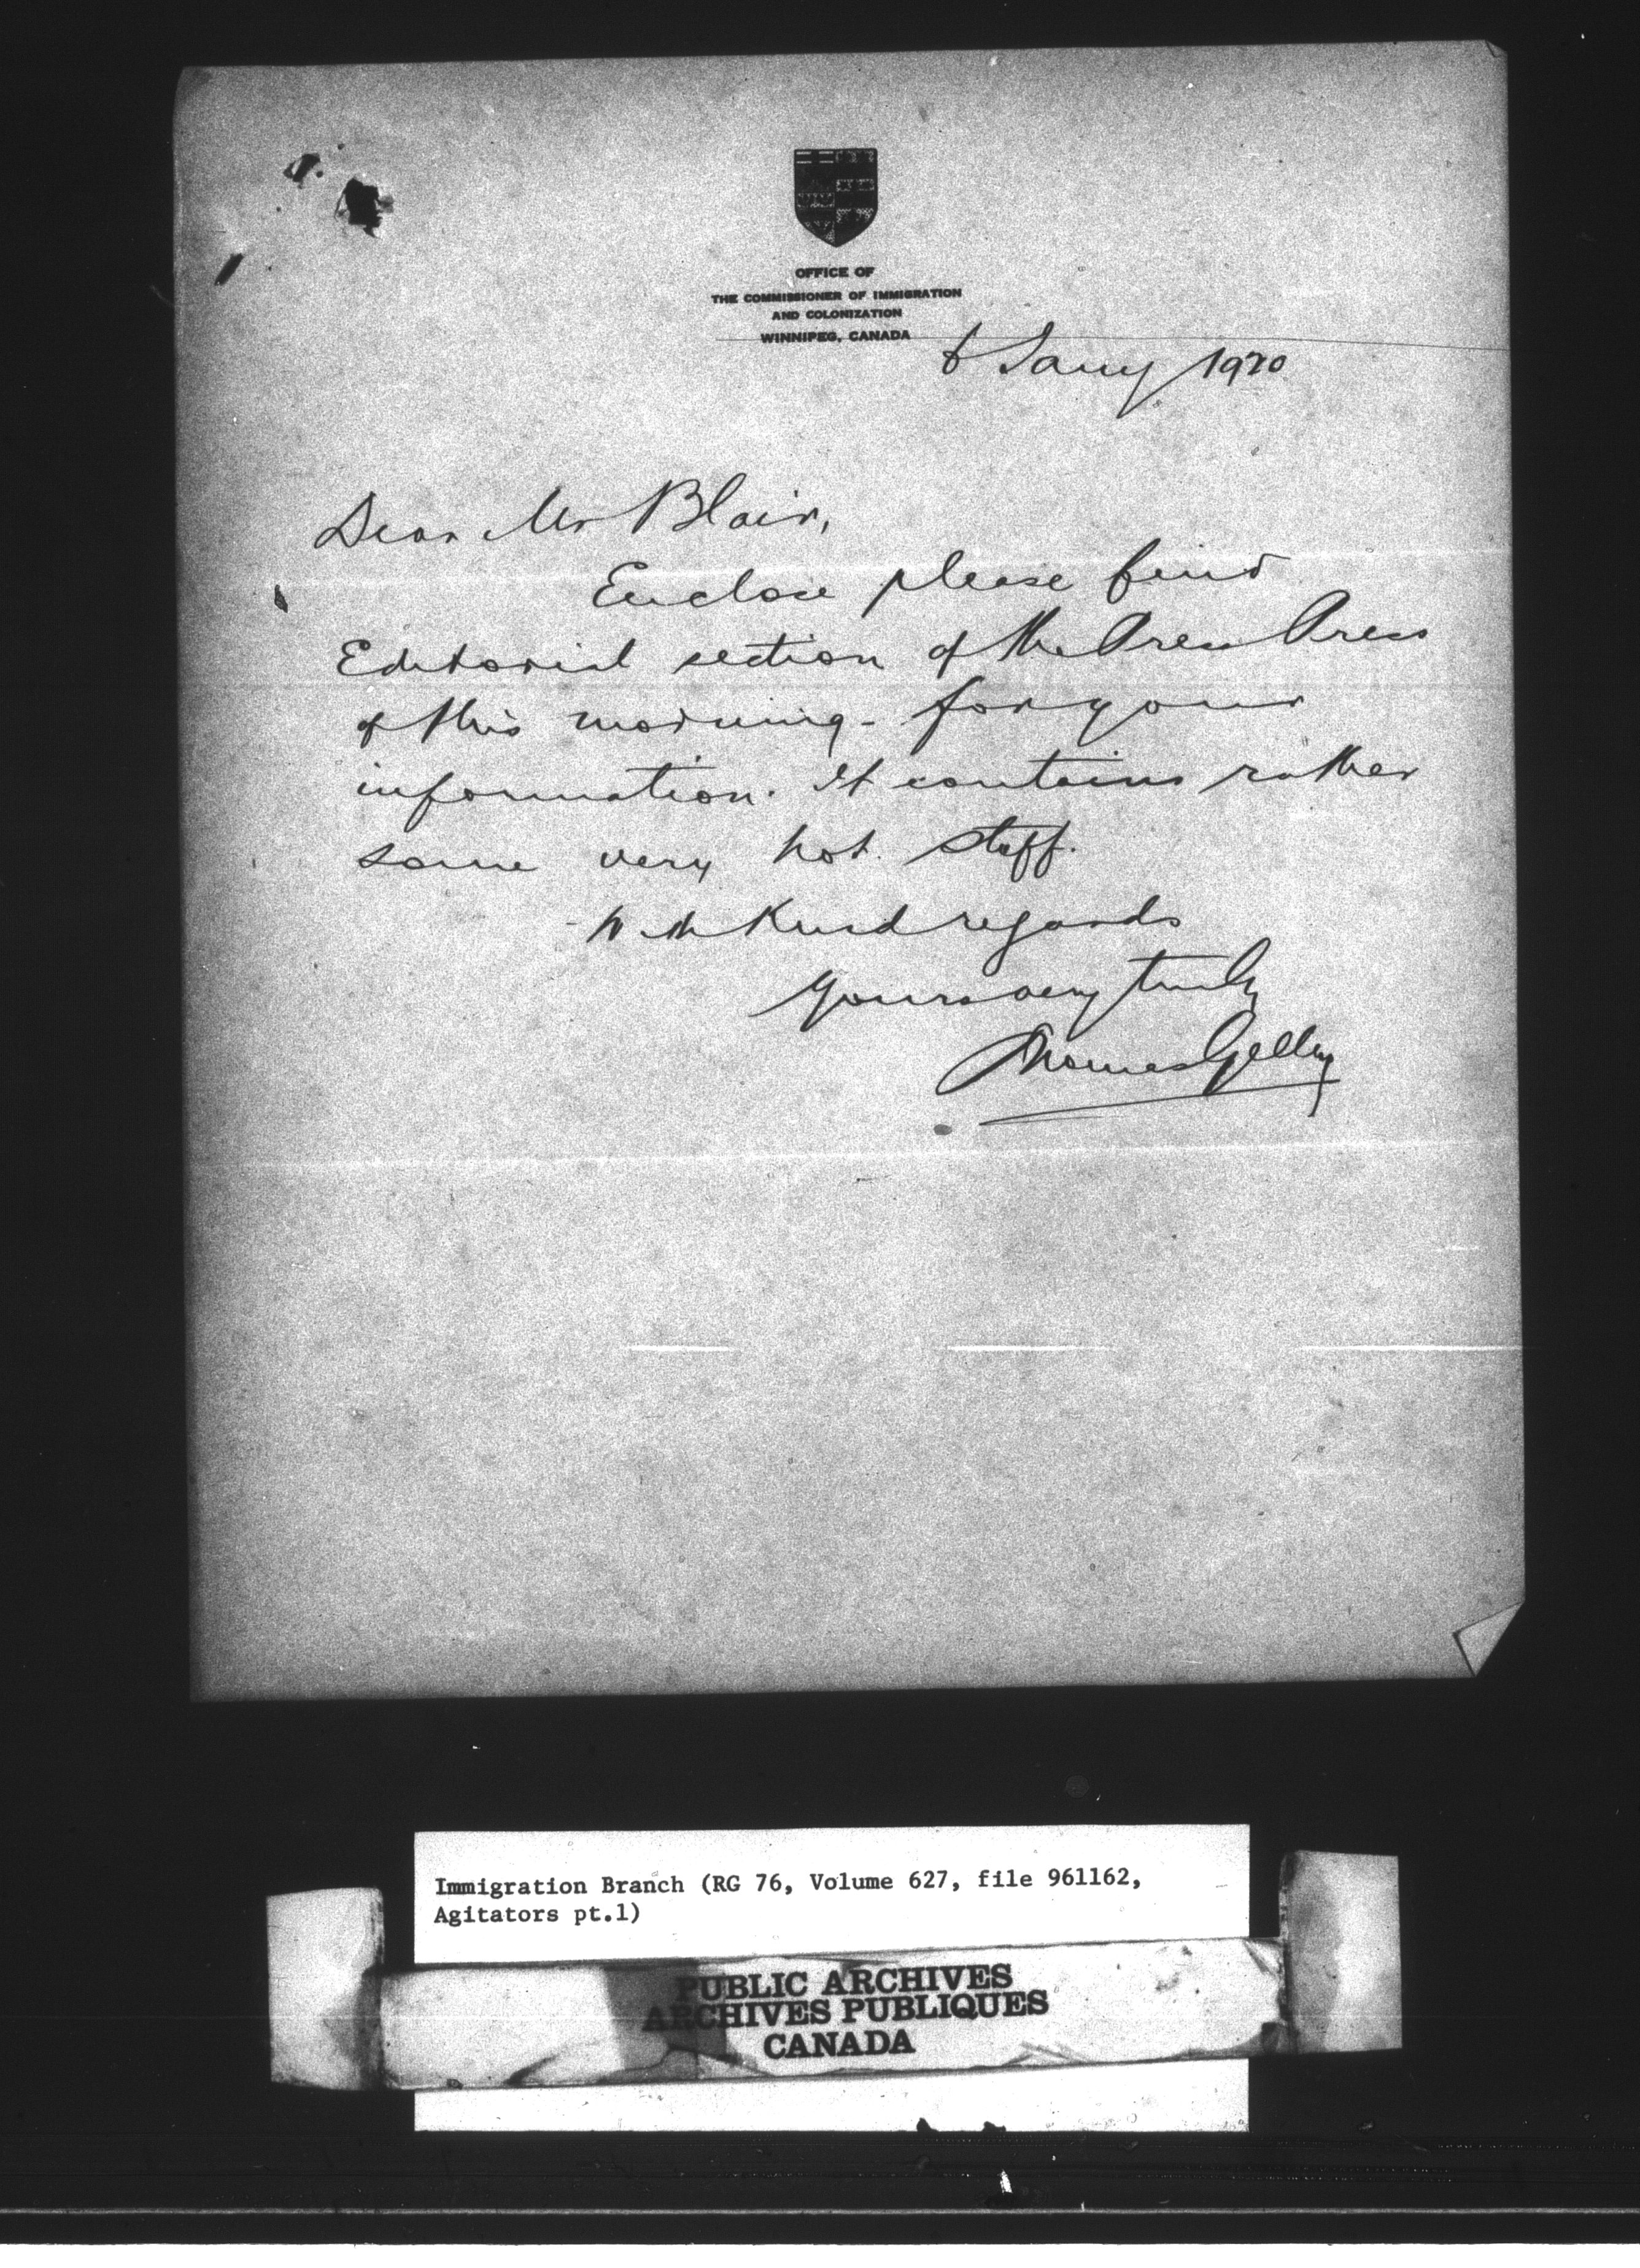 OFFICE OF
THE COMMISSIONER OF IMMIGRATION
AND COLONIZATION
WINNIPEG, CANADA
6 Jany 1920
Dear Mr Blair,
Enclose please find
Editorial section of the Free Press
of this morning - for your
information. It contains rather
some very hot stuff.
With Kind regards
Yours very truly
Thomas Gelley
Immigration Branch (RG 76, Volume 627, file 961162,
Agitators pt.1)
PUBLIC ARCHIVES
ARCHIVES PUBLIQUES
CANADA